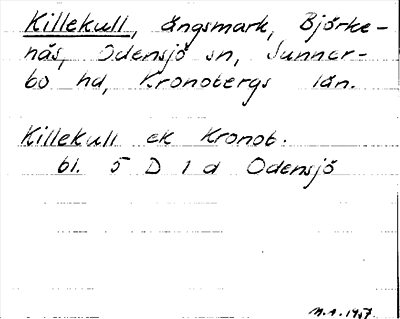 Killekull, ängsmark, Björke-
näs, Odensjö sn, Sunner-
bo hd, Kronobergs län.
Killekull ek Kronob.
bl. 5 D 1 d Odensjö